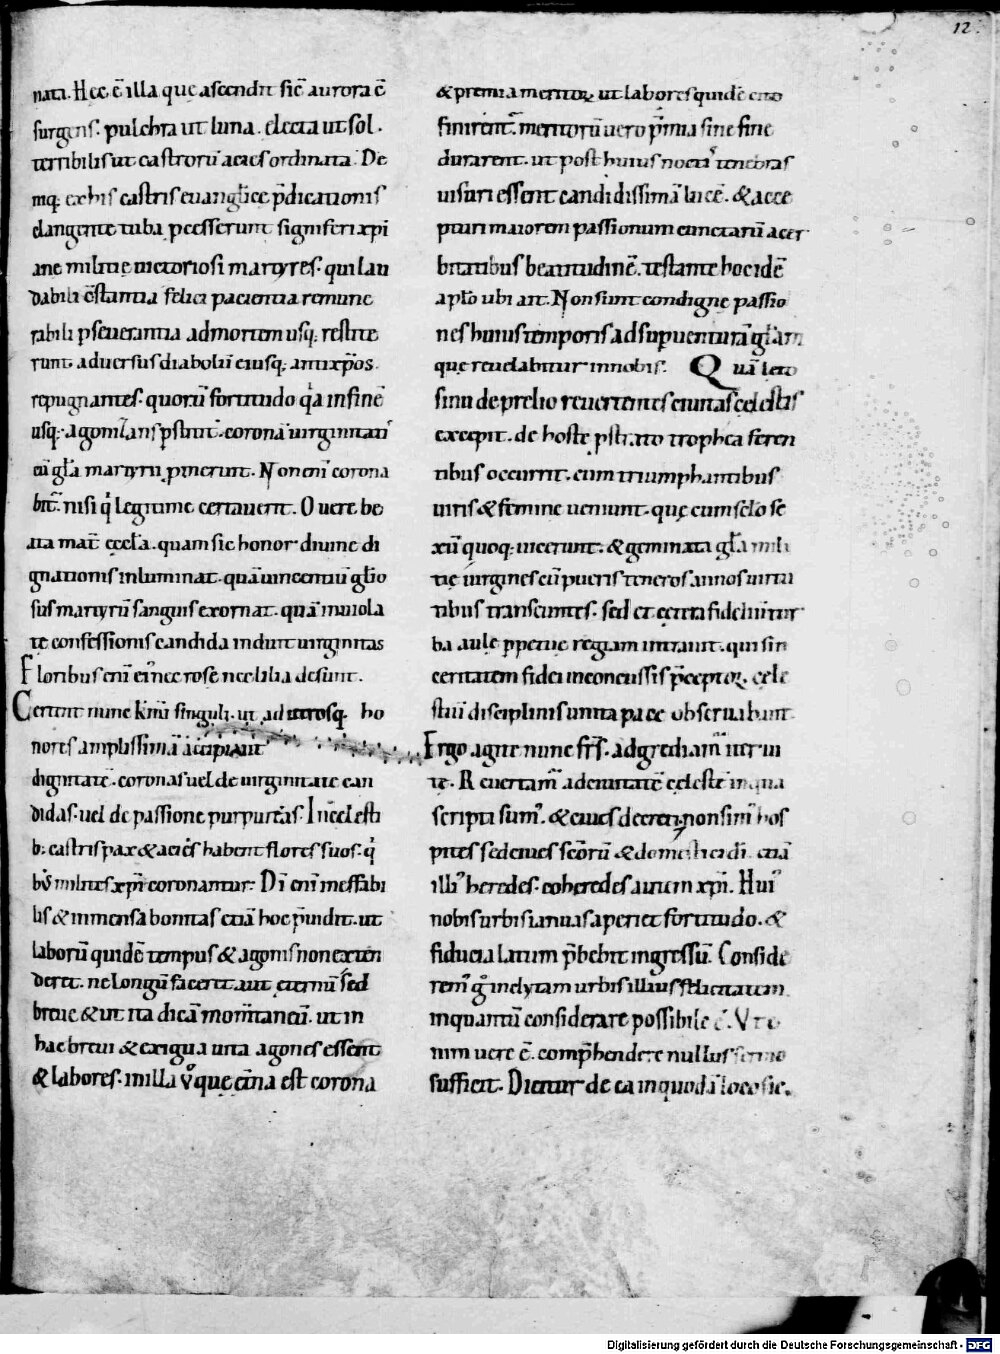 12.
nata. Hec ē illa quę ascendit sic̄ aurora ē
surgens. pulchra ut luna. electa ut sol.
terribilis ut castrorū acies ordinata. De
niq; ex his castris euanglicę p̄dicationis
clangente tuba pcesserunt signiferi xp̄i
anę militię uictoriosi martyres. qui lau
dabili c̄stantia felici pacientia remune
rabili pseuerantia ad mortem usq; restite
runt aduersus diabolū eiusq; antixp̄os.
repugnantes. quorū fortitudo q̄a in finē
usq; agonizans pstitit. coronā uirginitatis
cū gl̄a martyrii pmeruit. Non eni corona
bit̄ nisi qͥ legitime certauerit. O uere be
ata mat̄ eccl̄a. quam sic honor diuinę di
gnationis inluminat. quā uincentiū gl̄io
sus martyrū sanguis exornat. quā inuiola
tę confessionis candida induit uirginitas
Floribus eni ei' nec rosę nec lilia desunt.
Certent nunc kmi singuli. ut ad utrosq; ho
nores amplissimā accipiant
dignitatē. coronas uel de uirginitate can
didas. uel de passione purpureas. In cęlesti
b; castris pax & acies habent flores suos. qͥ
b; milites xp̄i coronantur. Di eni ineffabi
lis & inmensa bonitas etiā hoc p̄uidit. ut
laborū quidē tempus & agonis non exten
deret. nec longū faceret aut ęternū sed
breue & ut ita dicā momtaneū. ut in
hac breui & exigua uita agones essent
& labores. in illa v̊ que ęt̄na est corona
& premia meritoꝝ. ut labores quidē cito
finirent̄. meritorū uero p̄mia sine fine
durarent. ut post huius noctis tenebras
uisuri essent candidissimā lucē. & acce
pturi maiorem passionum cunctarū acer
bitatibus beatitudinē. testante hoc idē
aplo ubi ait. Non sunt condignę passio
nes huius temporis ad supuenturā gl̄am
quę reuelabitur in nobis. Quā lęto
sinu de prelio reuertentes ciuitas cęlestis
excepit. de hoste pstrato trophea feren
tibus occurrit. cum triumphantibus
uiris & feminę ueniunt. quę cum sęlo se
xū quoq; uicerunt. & geminata gl̄a mili
tię uirgines cū pueris teneros annos uirtu
tibus transeuntes. sed et cetera fideliū tur
ba aulę ppetuę regiam intrauit. qui sin
ceritatem fidei inconcussis p̄ceptoꝝ. cęle
stiū disciplinis unita pace obseruabant.
Ergo agite nunc fr̄s. adgrediam' iter ui
tę. Reuertam' ad ciuitatē cęlestē in qua
scripti sum'. & ciues decreti. non sim' hos
pites sed ciues sc̄orū & domestici di. etiā
illi' heredes. coheredes autem xp̄i. Hui'
nobis urbis ianuas aperiet fortitudo. &
fiducia latum p̄bebit ingressū. Conside
rem' g̊ inclytam urbis illius felicitatem
inquantū considerare possibile ē. Vt e
nim uere ē. comp̄hendere nullus sermo
sufficit. Dicitur de ea in quodā loco sic.
Digitalisierung gefördert durch die Deutsche Forschungsgemeinschaft - DFG